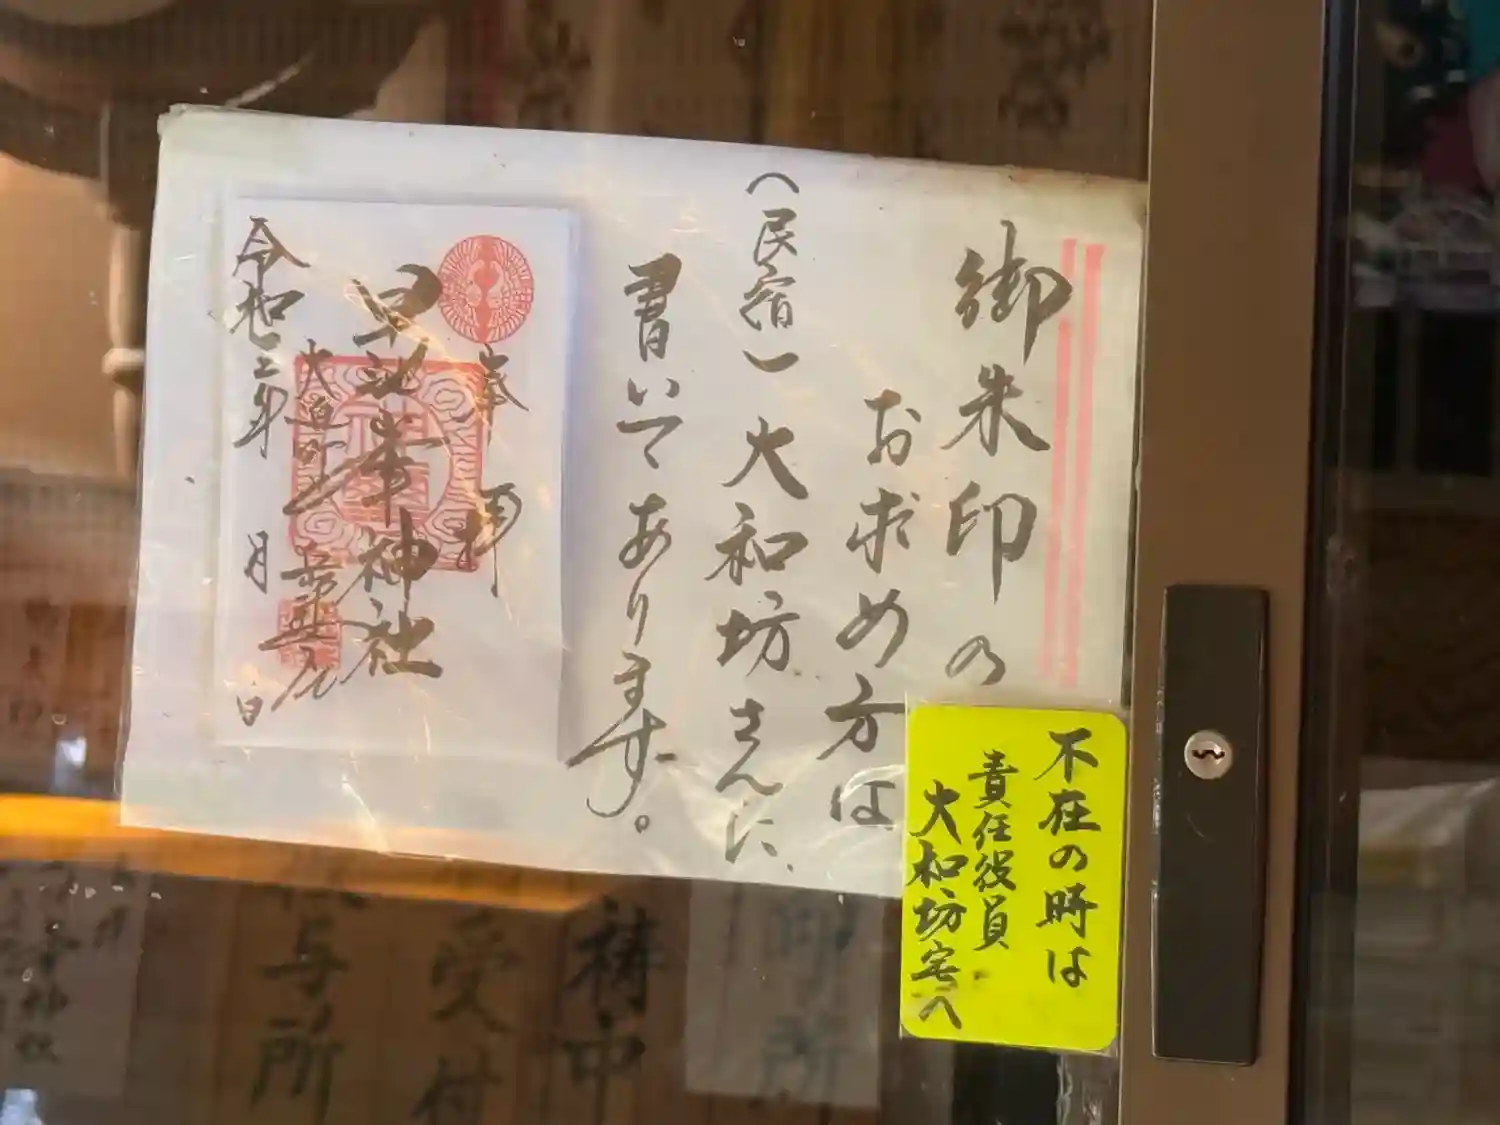 御朱印の
お求め方は
(民宿)大和坊さんに、
書いてあります。
奉拝
早池峯神社
令和二年 月 日
不在の時は
責任役員
大和坊宅へ
与所
受付
祷中